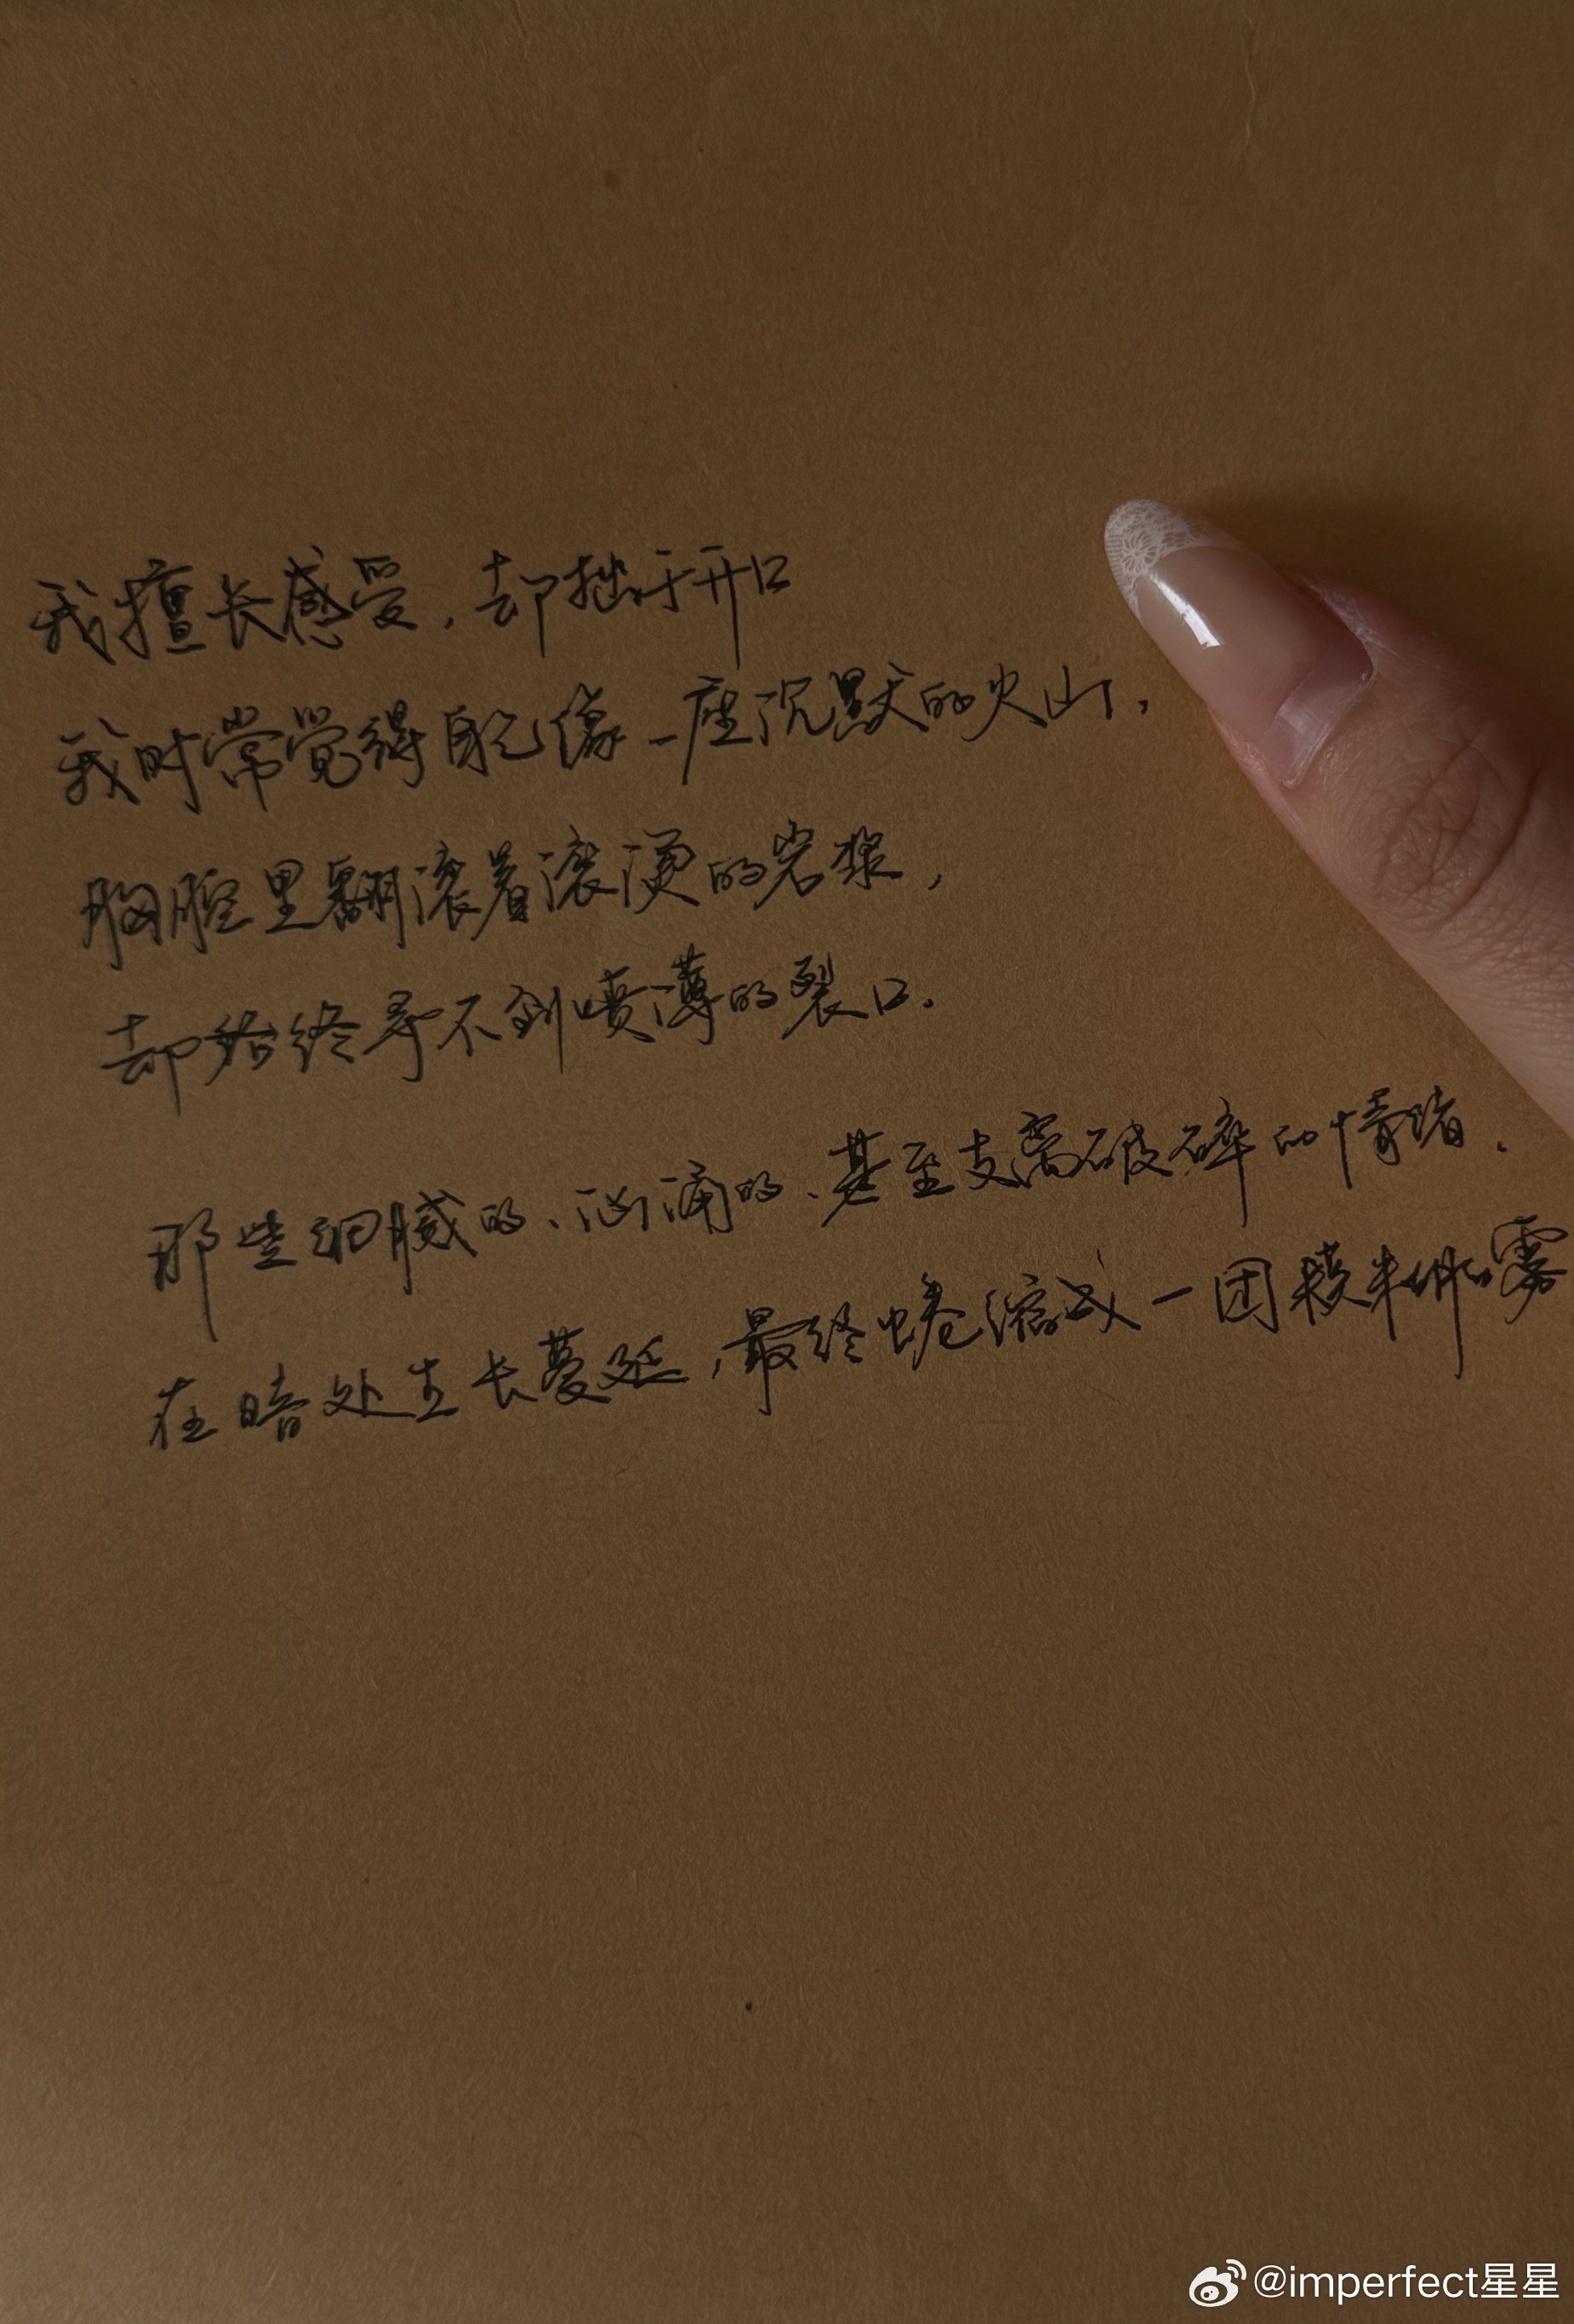 我擅长感受，却拙于开口
我时常觉得自己像一座沉默的火山，
胸腔里翻滚着滚烫的岩浆，
却始终寻不到喷薄的裂口．
那些细腻的、汹涌的、甚至支离破碎的情绪．
在暗处生长蔓延，最终蜷缩成一团模糊的雾
@imperfect星星